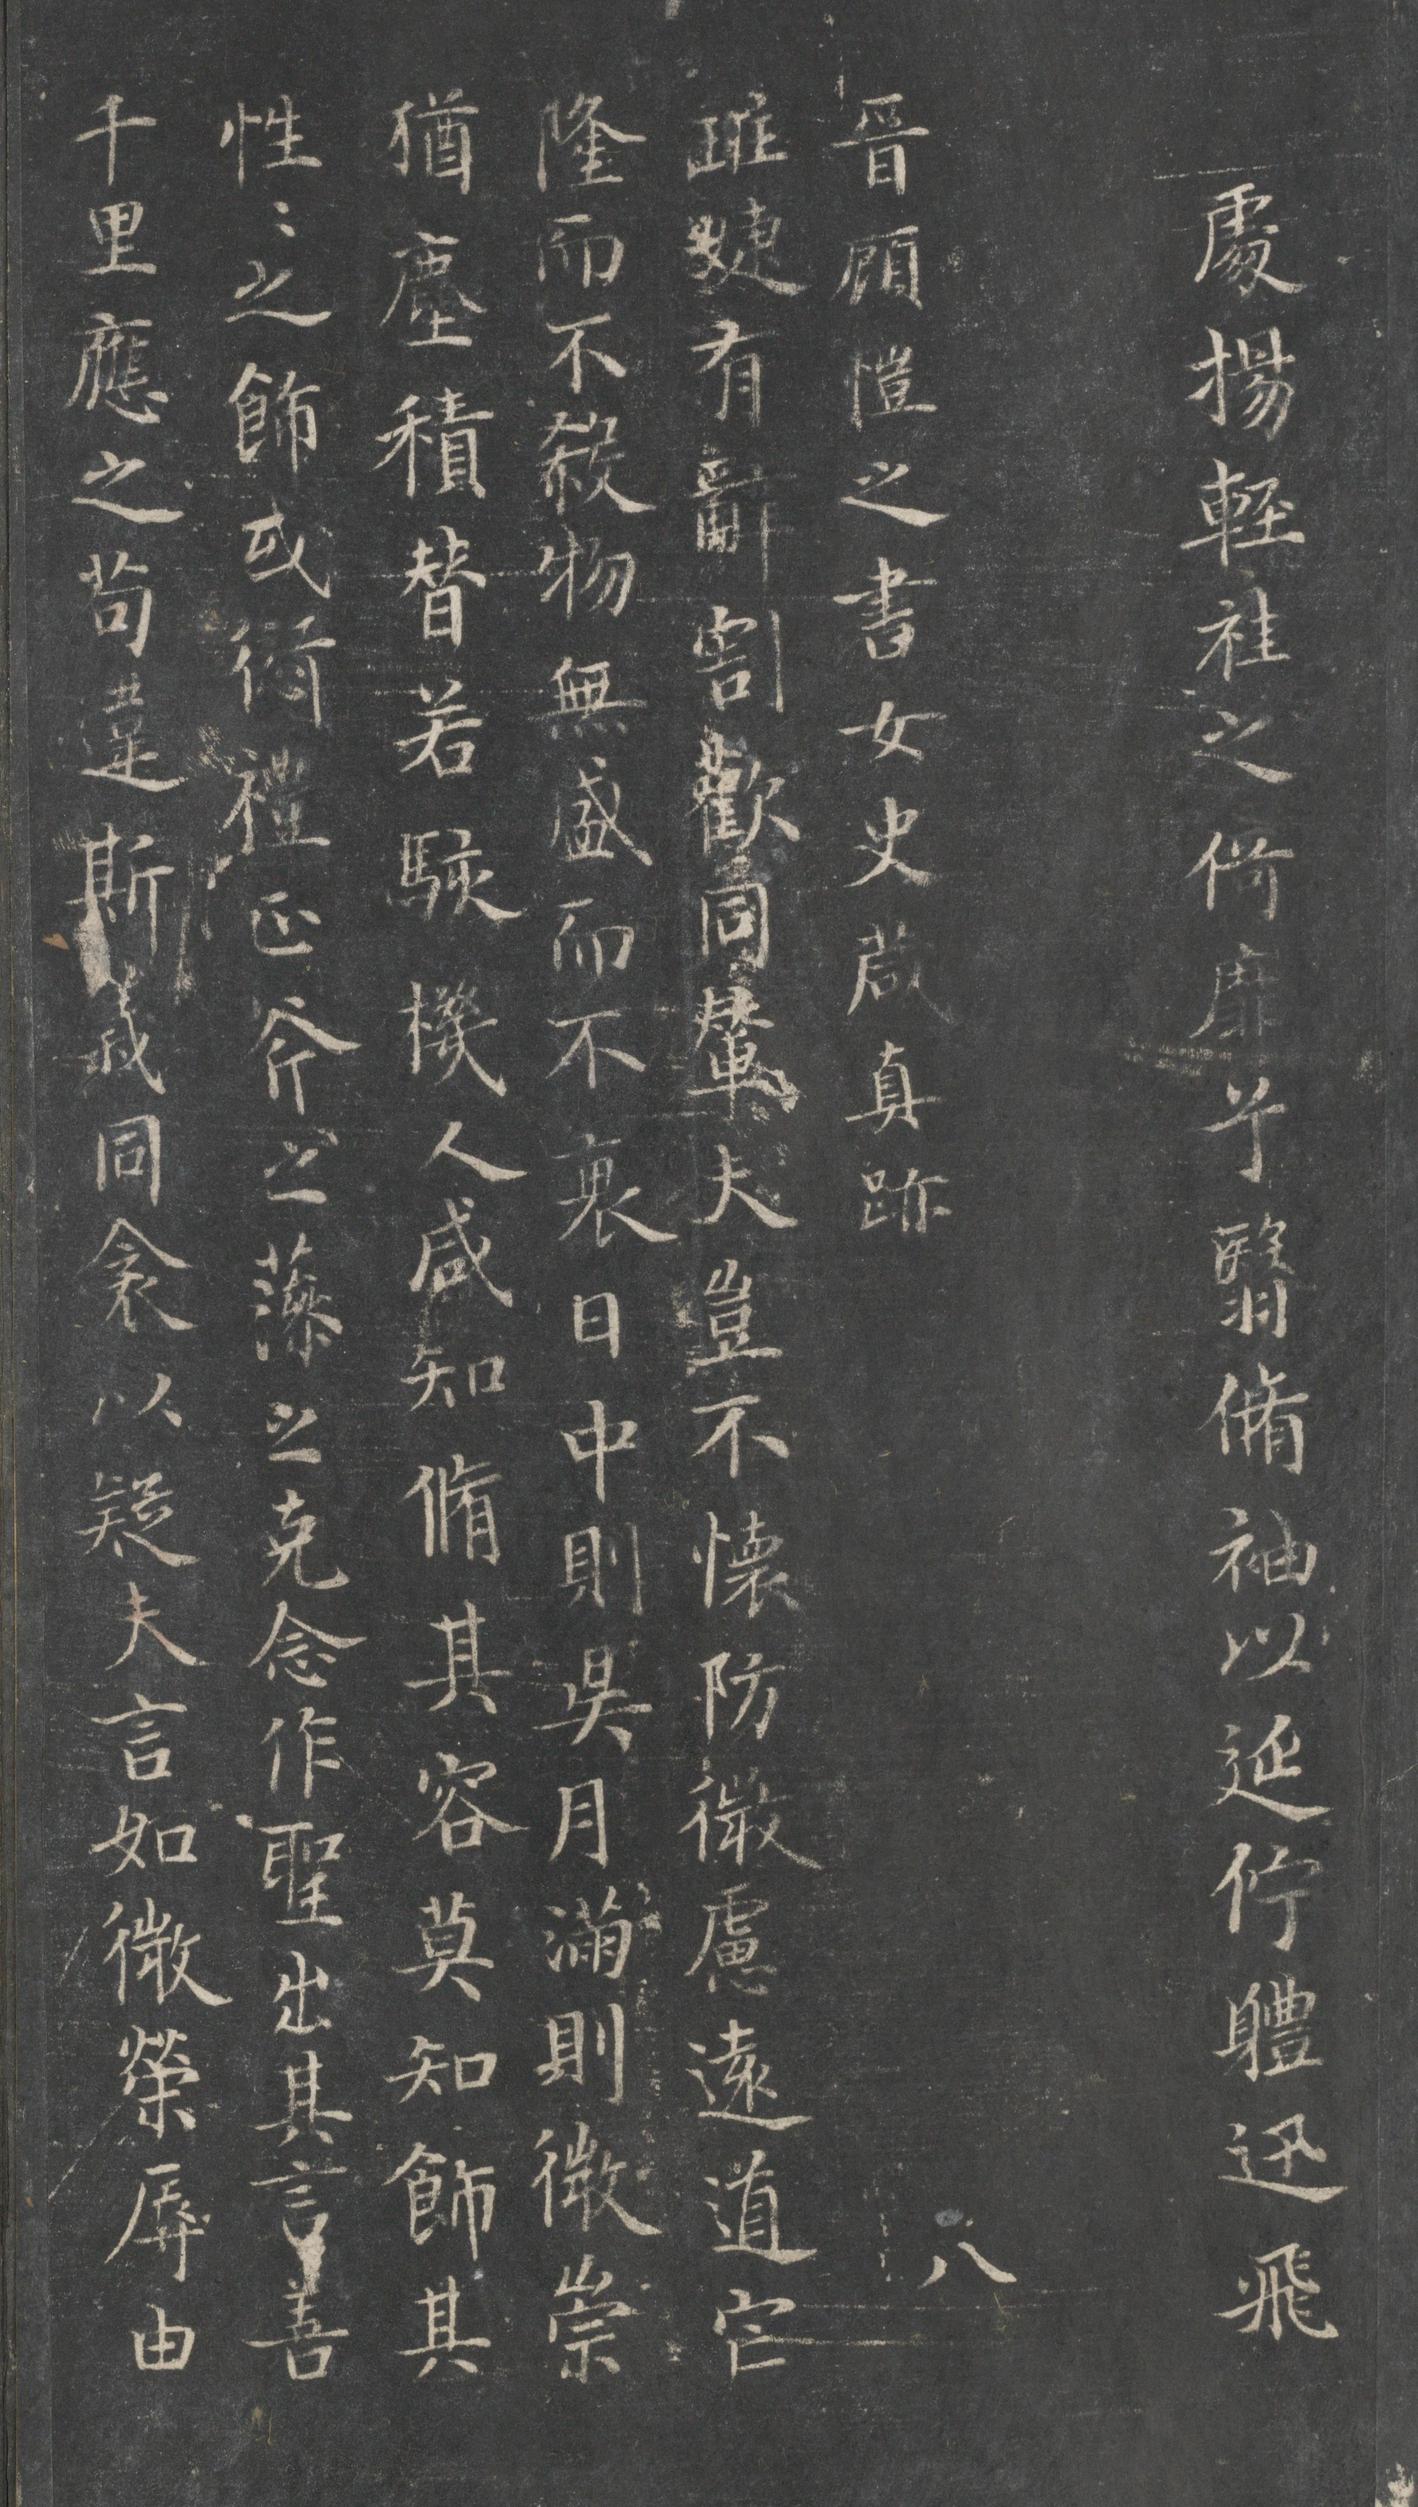 處揚輕袿之倚靡兮翳脩袖以延佇體迅飛
八
晉顧愷之書女史箴真跡
班婕有辭割歡同輦夫豈不懷防微慮遠道它
隆而不殺物無盛而不衰日中則昃月滿則微崇
猶塵積替若駭機人咸知脩其容莫知飾其
性〻之飾或愆禮正斧之藻之克念作聖出其言善
千里應之苟違斯義同衾以疑夫言如微榮辱由